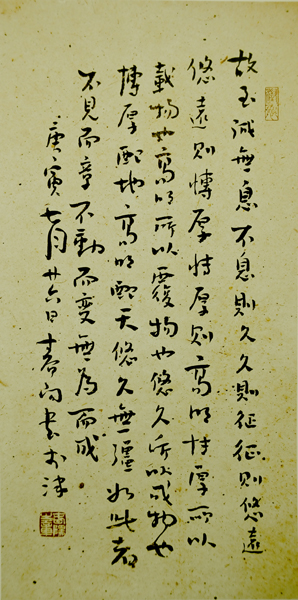 故至誠無息不息則久久則征征則悠遠
悠遠則博厚博厚則高明博厚所以
載物也高明所以覆物也悠久所以成物也
博厚配地高明配天悠久無疆如此者
不見而章不動而變無為而成
庚寅七月廿六日春書於津